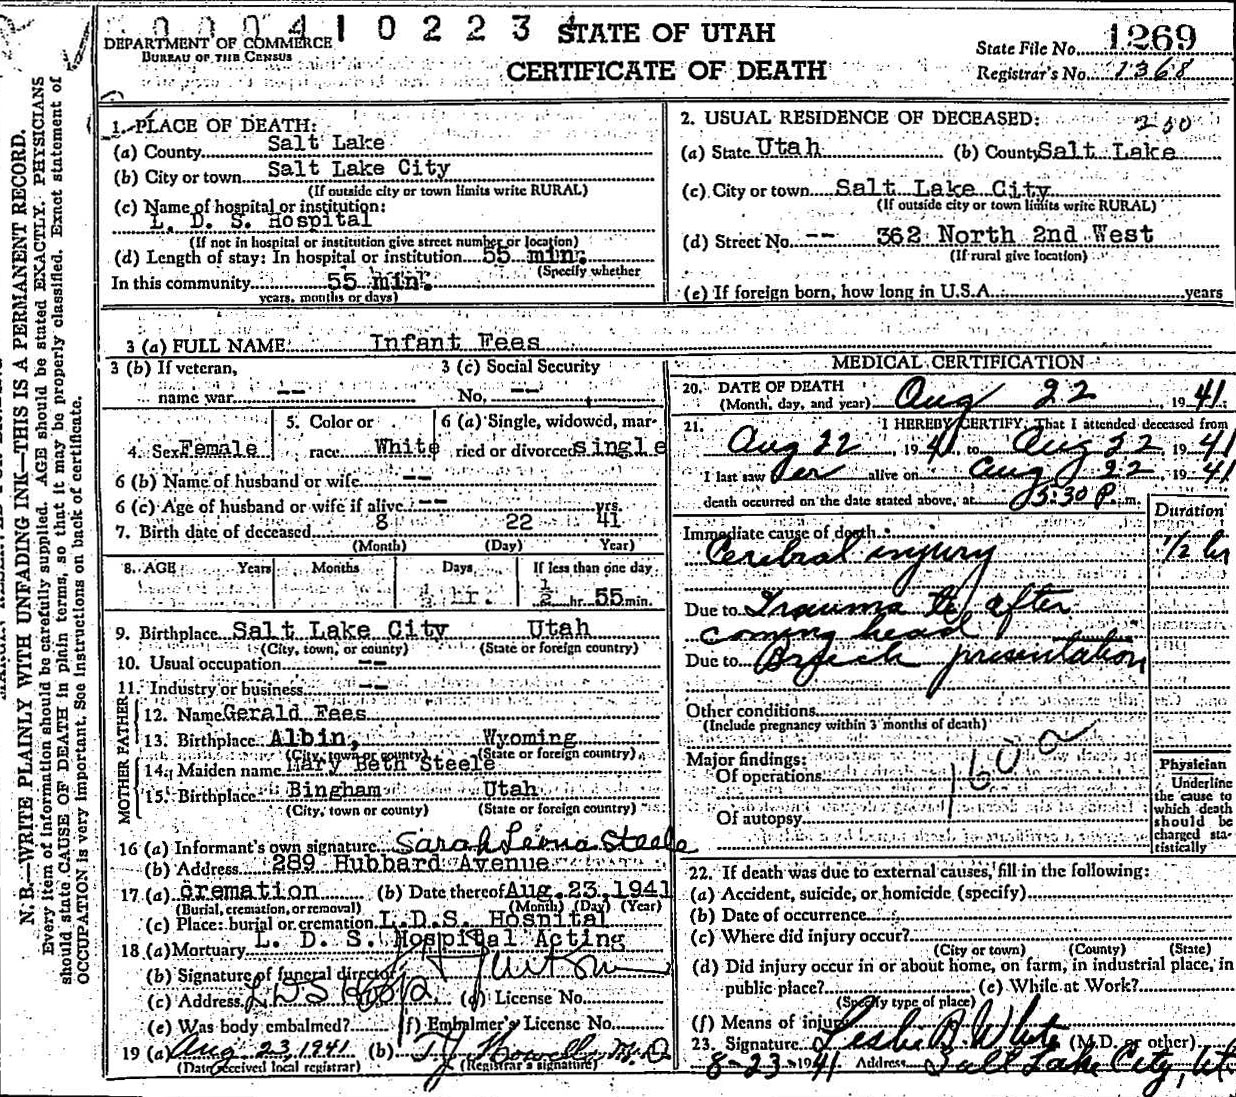 0004102234 STATE OF UTAH
DEPARTMENT OF COMMERCE
BUREAU OF THE CENSUS
CERTIFICATE OF DEATH
State File No. 1269
Registrar's No. 1368
N. B.—WRITE PLAINLY WITH UNFADING INK—THIS IS A PERMANENT RECORD.
Every item of information should be carefully supplied. AGE should be stated EXACTLY. PHYSICIANS
should state CAUSE OF DEATH in plain terms, so that it may be properly classified. Exact statement of
OCCUPATION is very important. See instructions on back of certificate.
1. PLACE OF DEATH:
(a) County Salt Lake
(b) City or town Salt Lake City
(If outside city or town limits write RURAL)
(c) Name of hospital or institution:
L. D. S. Hospital
(If not in hospital or institution give street number or location)
(d) Length of stay: In hospital or institution 55 min.
(Specify whether
In this community 55 min.
years, months or days)
2. USUAL RESIDENCE OF DECEASED:
(a) State Utah (b) County Salt Lake
(c) City or town Salt Lake City
(If outside city or town limits write RURAL)
(d) Street No. -- 362 North 2nd West
(If rural give location)
(e) If foreign born, how long in U.S.A. years
3 (a) FULL NAME Infant Fees
3 (b) If veteran,
name war --
3 (c) Social Security
No. --
4. Sex Female
5. Color or
race White
6 (a) Single, widowed, mar-
ried or divorced single
6 (b) Name of husband or wife --
6 (c) Age of husband or wife if alive -- yrs.
7. Birth date of deceased 8 22 41
(Month) (Day) Year)
8. AGE Years Months Days If less than one day
½ hr. ½ hr. 55 min.
9. Birthplace Salt Lake City Utah
(City, town, or county) (State or foreign country)
10. Usual occupation --
11. Industry or business --
FATHER
12. Name Gerald Fees
13. Birthplace Albin, Wyoming
(City, town or county) (State or foreign country)
MOTHER
14. Maiden name Mary Beth Steele
15. Birthplace Bingham Utah
(City, town or county) (State or foreign country)
16 (a) Informant's own signature Sarah Leona Steele
(b) Address 289 Hubbard Avenue
17 (a) cremation (b) Date thereof Aug. 23, 1941
(Burial, cremation, or removal) (Month) (Day) (Year)
(c) Place: burial or cremation L.D.S. Hospital
18 (a) Mortuary L. D. S. Hospital Acting
(b) Signature of funeral director
(c) Address L D S Hosp (d) License No.
(e) Was body embalmed? (f) Embalmer's License No.
19 (a) Aug 23, 1941 (b) M.D.
(Date received local registrar) (Registrar's signature)
MEDICAL CERTIFICATION
20. DATE OF DEATH
(Month, day, and year) Aug 22, 1941
21. I HEREBY CERTIFY, That I attended deceased from
Aug 22, 1941, to Aug 22, 1941
I last saw her alive on Aug 22, 1941
death occurred on the date stated above, at 5:30 P. m.
Duration
Immediate cause of death
Cerebral injury 1/2 hr
Due to Trauma to after
coming head
Due to Breech presentation
Other conditions
(Include pregnancy within 3 months of death)
Major findings: 160a
Of operations
Of autopsy
Physician
Underline
the cause to
which death
should be
charged sta-
tistically
22. If death was due to external causes, fill in the following:
(a) Accident, suicide, or homicide (specify)
(b) Date of occurrence
(c) Where did injury occur?
(City or town) (County) (State)
(d) Did injury occur in or about home, on farm, in industrial place, in
public place? (e) While at Work?
(Specify type of place)
(f) Means of injury
23. Signature Leslie B White (M.D. or other)
8-23-1941 Address Salt Lake City, Ut